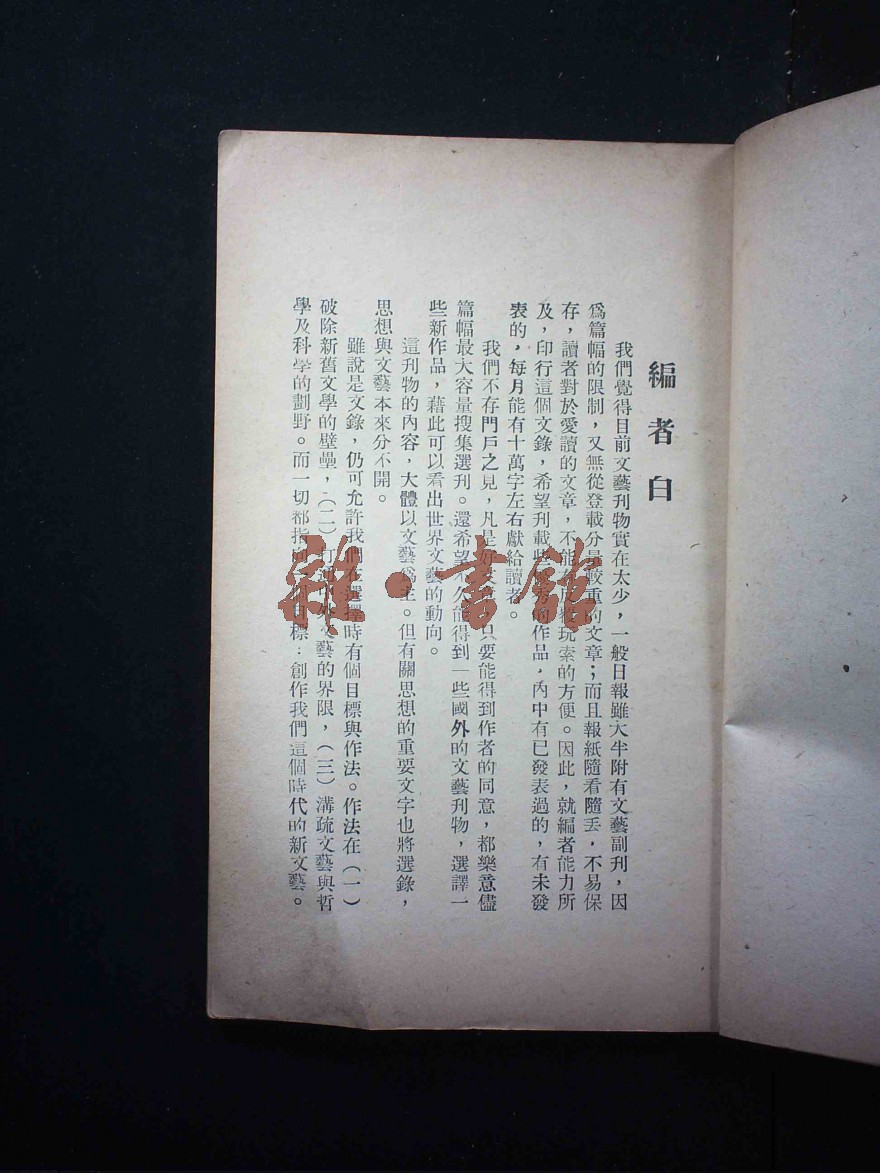 編者白
我們覺得目前文藝刊物實在太少，一般日報雖大半附有文藝副刊，因
爲篇幅的限制，又無從登載分量較重的文章；而且報紙隨看隨丟，不易保
存，讀者對於愛讀的文章，不能玩索的方便。因此，就編者能力所
及，印行這個文錄，希望刊載些的作品，內中有已發表過的，有未發
表的，每月能有十萬字左右獻給讀者。
我們不存門戶之見，凡是好只要能得到作者的同意，都樂意儘
篇幅最大容量搜集選刊。還希望不久能得到一些國外的文藝刊物，選譯一
些新作品，藉此可以看出世界文藝的動向。
這刊物的內容，大體以文藝爲主。但有關思想的重要文字也將選錄，
思想與文藝本來分不開。
雖說是文錄，仍可允許我們在選擇時有個目標與作法。作法在（一）
破除新舊文學的壁壘，（二）打文藝的界限，（三）溝疏文藝與哲
學及科學的劃野。而一切都指標：創作我們這個時代的新文藝。
雜·書館